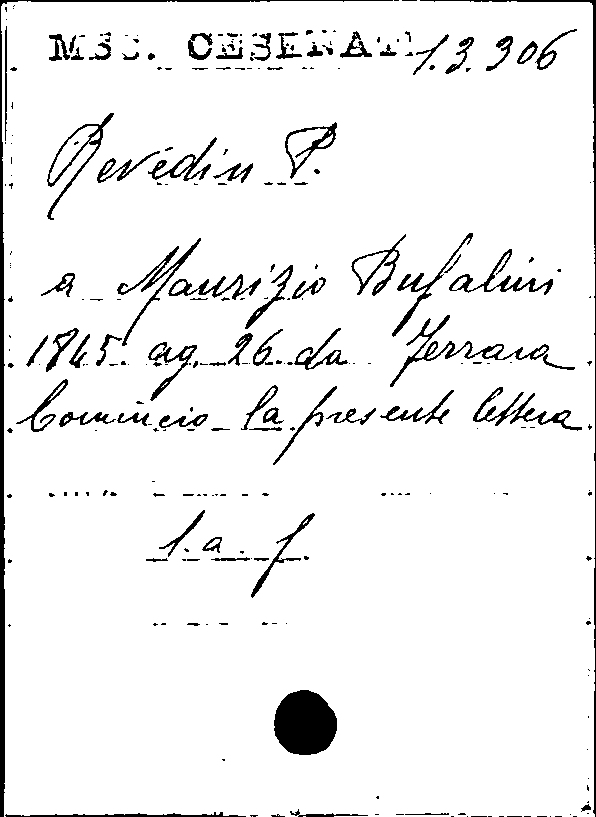 MSS. CESENATI 1.3.306
Revedin P.
a Maurizio Bufalini
1845 ag. 26 da Ferrara
Comincio la presente lettera
l. a. f.